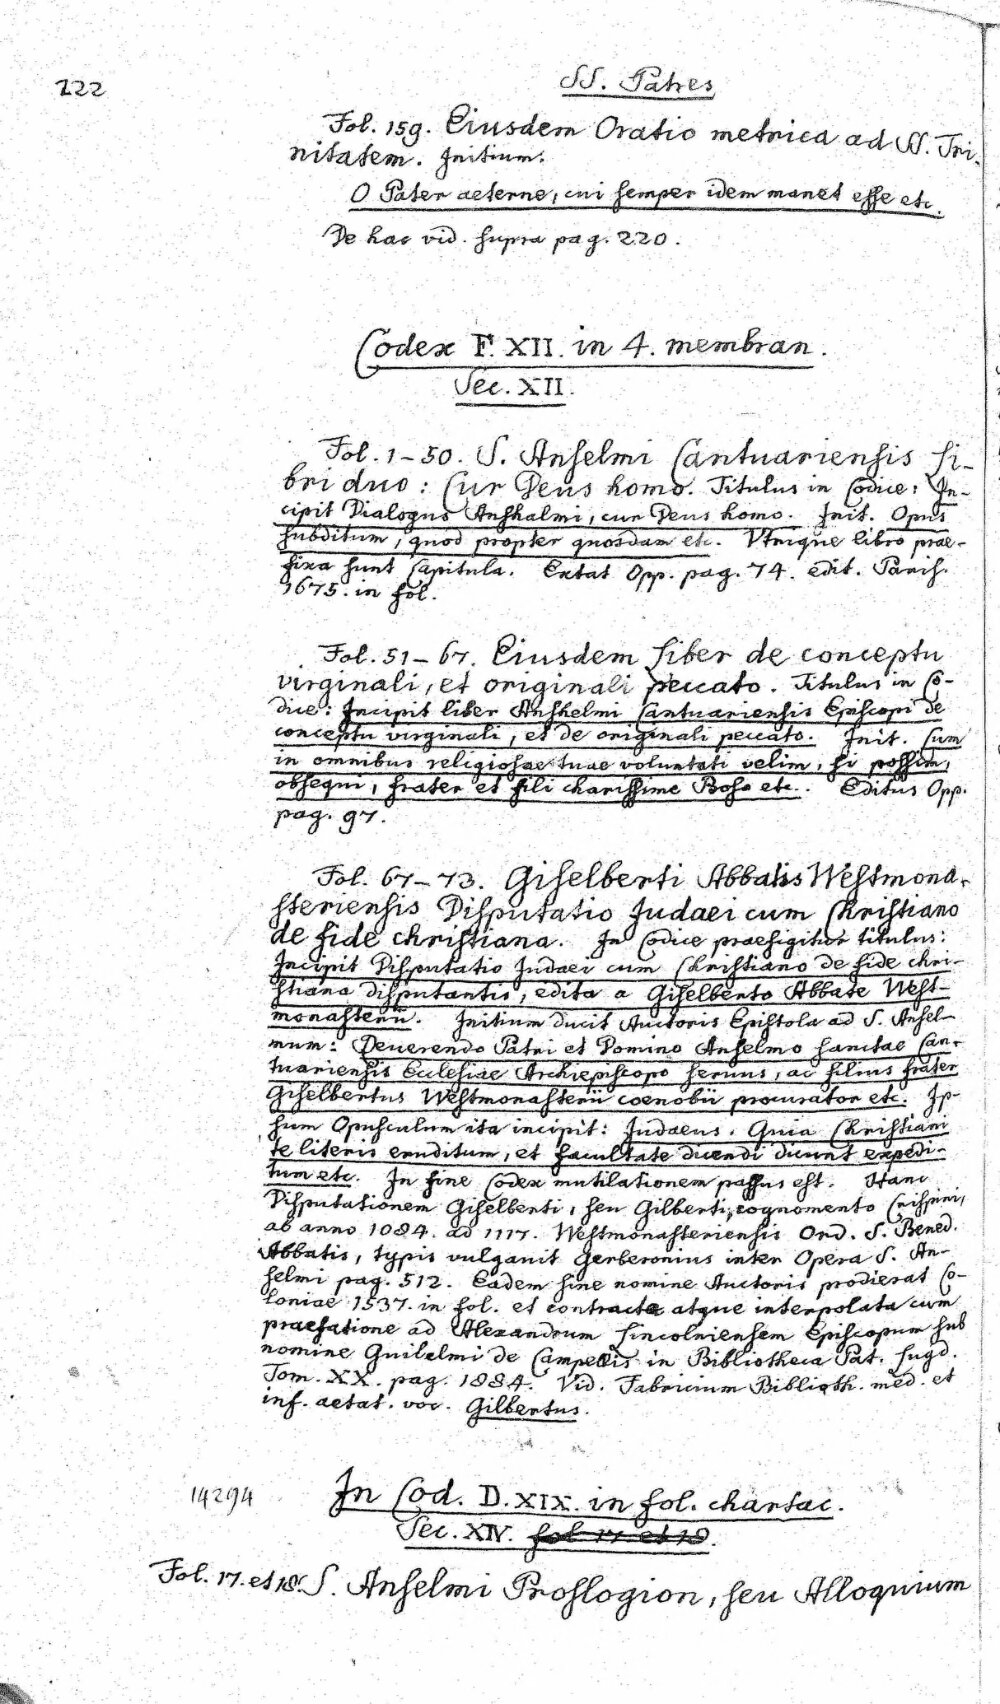 222
SS. Patres
Fol. 159. Eiusdem Oratio metrica ad SS. Tri-
nitatem. Initium:
O Pater aeterne, cui semper idem manet esse etc.
De hac vid. supra pag. 220.
Codex F. XII. in 4. membran.
Sec. XII.
Fol. 1-50. S. Anselmi Cantuariensis Li-
bri duo: Cur Deus homo. Titulus in Codice: In-
cipit Dialogus Anshalmi, cur Deus homo. Init. Opus
subditum, quod propter quosdam etc. Utrique libro prae-
fixa sunt Capitula. Extat Opp. pag. 74. edit. Paris.
1675. in fol.
Fol. 51-67. Eiusdem Liber de conceptu
virginali, et originali peccato. Titulus in Co-
dice: Incipit liber Anshelmi Cantuariensis Episcopi de
conceptu virginali, et de originali peccato. Init. Cum
in omnibus religiosae tuae voluntati velim, si possim,
obsequi, frater et fili charissime Boso etc. Editus Opp.
pag. 97.
Fol. 67-73. Giselberti Abbatis Westmona-
steriensis Disputatio Judaei cum Christiano
de fide christiana. In Codice praefigitur titulus:
Incipit Disputatio Judaei cum Christiano de fide chri-
stiana disputantis, edita a Giselberto Abbate West-
monasterii. Initium ducit Auctoris Epistola ad S. Ansel-
mum: Reuerendo Patri et Domino Anselmo sanctae Can-
tuariensis Ecclesiae Archiepiscopo seruus, ac filius frater
Giselbertus Westmonasterii coenobii procurator etc. Ip-
sum Opusculum ita incipit: Judaeus. Quia Christiani
te literis eruditum, et facultate dicendi dicunt expedi-
tum etc. In fine Codex mutilationem passus est. Hanc
Disputationem Giselberti, seu Gilberti, cognomento Crispini,
ab anno 1084. ad 1117. Westmonasteriensis Ord. S. Bened.
Abbatis, typis vulgavit Gerberonius inter Opera S. An-
selmi pag. 512. Eadem sine nomine Auctoris prodierat Co-
loniae 1537. in fol. et contracta atque interpolata cum
praefatione ad Alexandrum Lincolniensem Episcopum sub
nomine Guilelmi de Campellis in Bibliotheca Pat. Lugd.
Tom. XX. pag. 1884. Vid. Fabricium Biblioth. med. et
inf. aetat. voc. Gilbertus.
14294
In Cod. D. XIX. in fol. chartac.
Sec. XIV. fol 17 et 18.
Fol. 17. et 18. S. Anselmi Proslogion, seu Alloquium